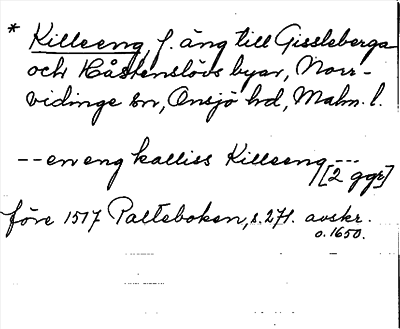 * Killeeng, f. äng till Gissleberga
och Håstenslövs byar, Norr-
vidinge sn, Onsjö hd, Malm. l.
-- en eng kalliss Killeeng ---
[2 ggr]
före 1517 Palteboken, s. 271. avskr.
o. 1650.